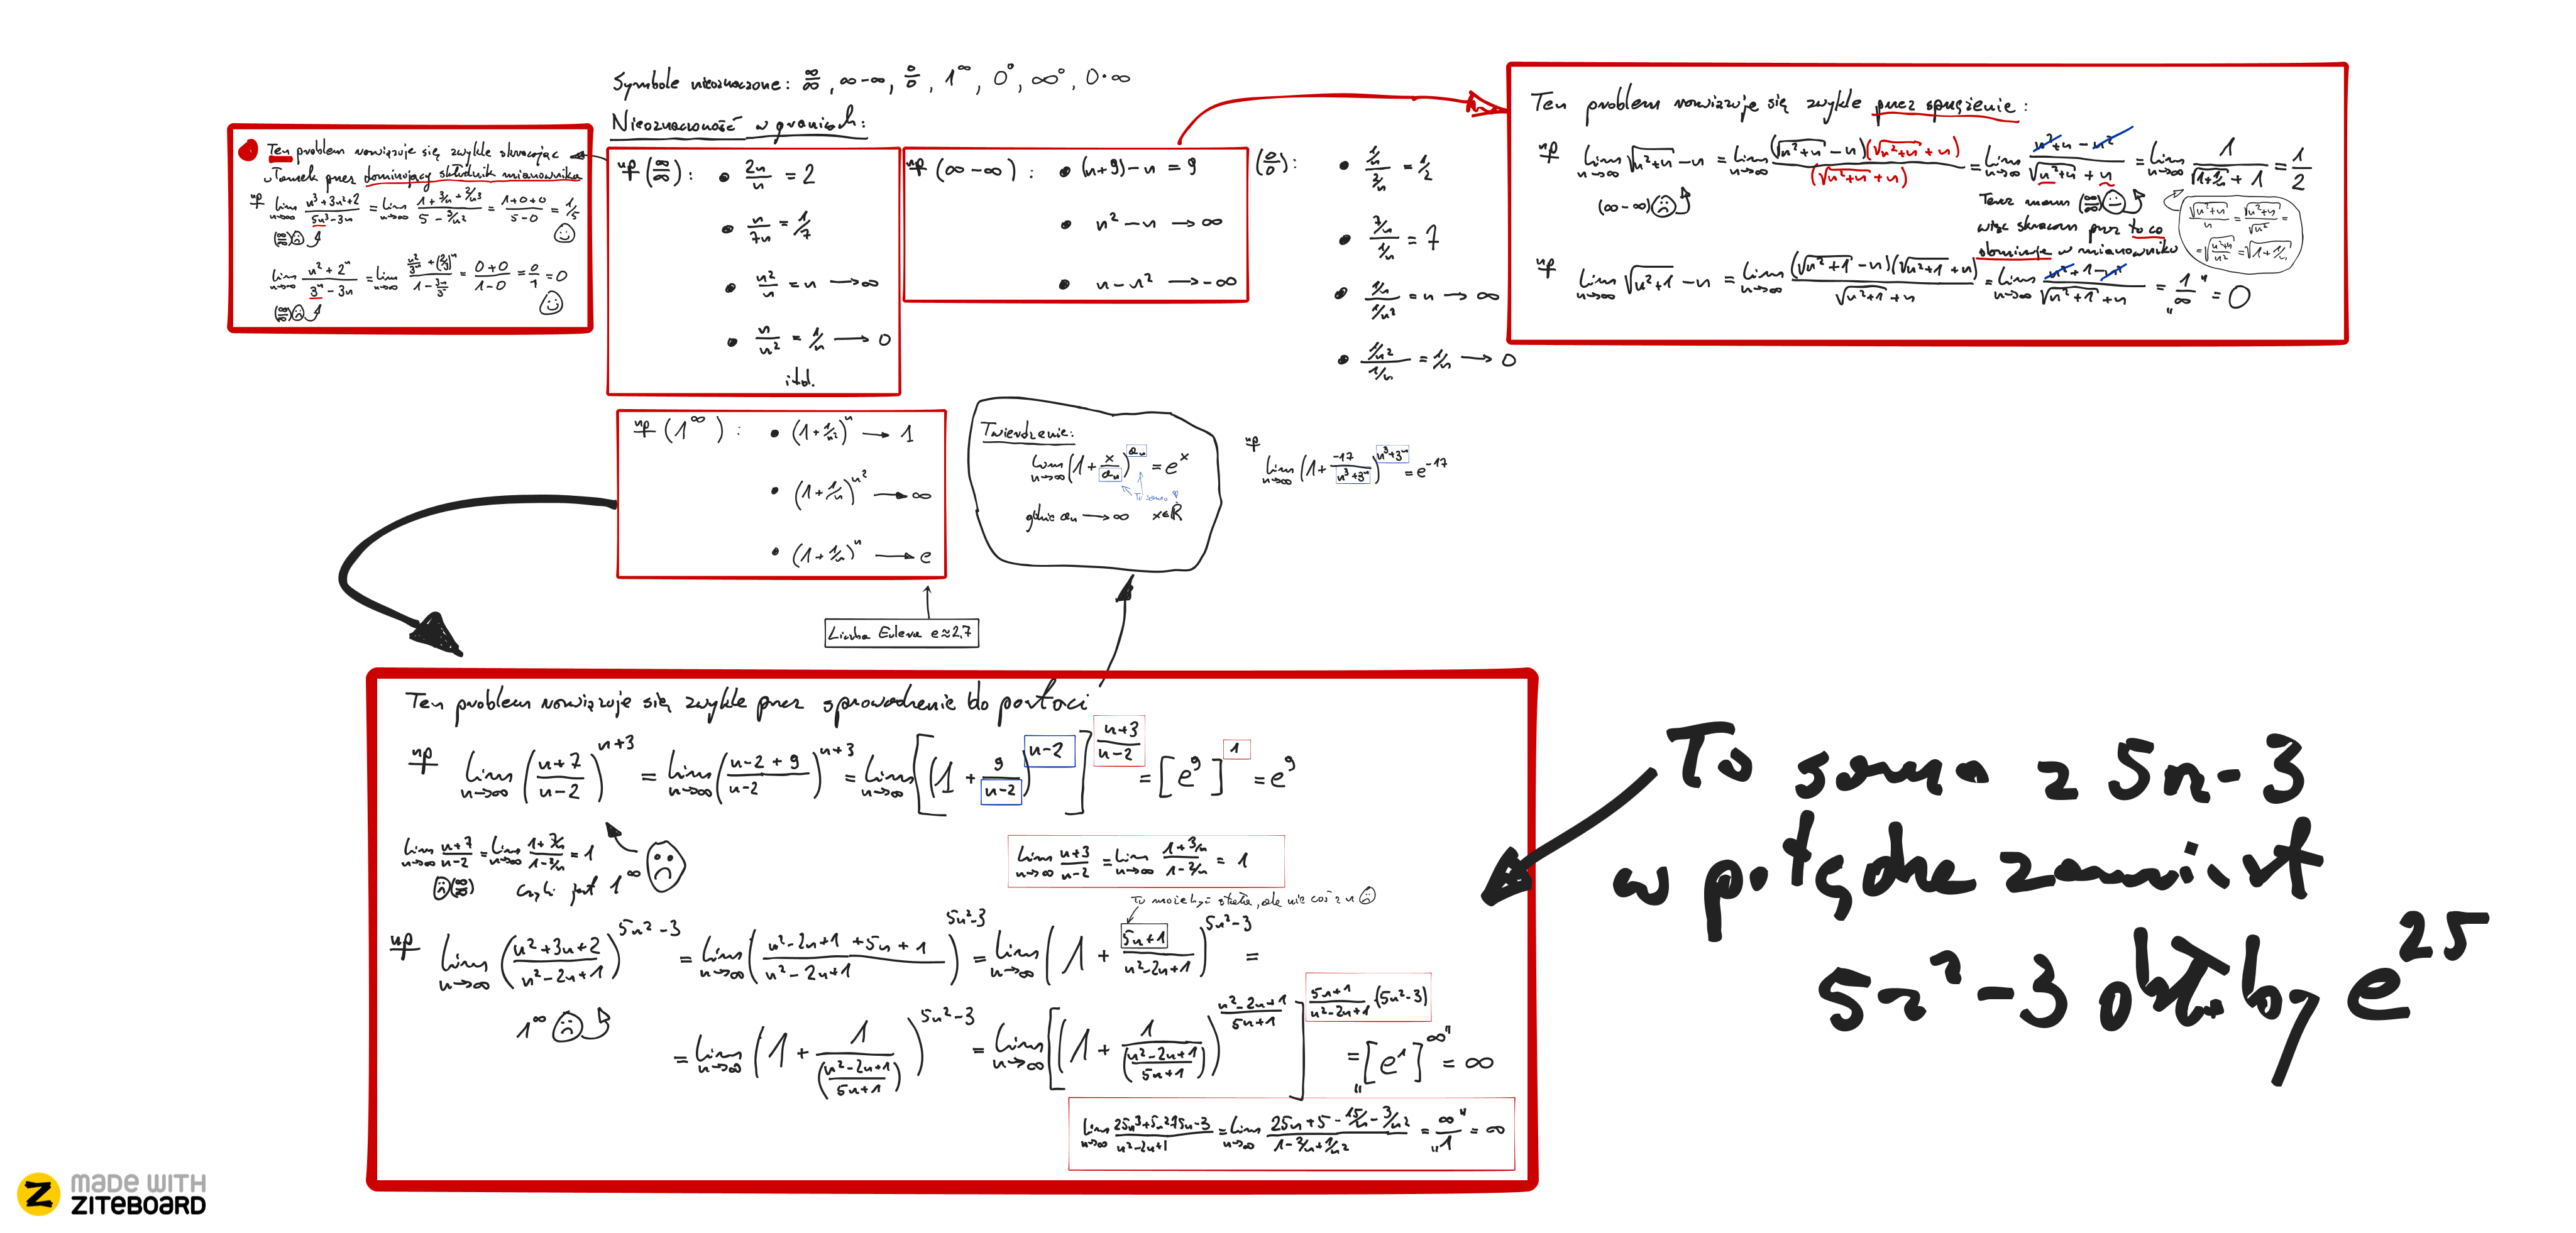 Symbole nieoznaczone: ∞/∞, ∞-∞, 0/0, 1^∞, 0^0, ∞^0, 0·∞
Nieoznaczoność w granicach:
Ten problem rozwiązuje się zwykle skracając
ułamek przez dominujący składnik mianownika
np lim n→∞ (n³+3n²+2)/(5n³-3n) = lim n→∞ (1+3/n+2/n³)/(5-3/n²) = (1+0+0)/(5-0) = 1/5
(∞/∞)
lim n→∞ (n²+2^n)/(3^n-3n) = lim n→∞ (n²/3^n+(2/3)^n)/(1-3n/3^n) = (0+0)/(1-0) = 0/1 = 0
(∞/∞)
np (∞/∞): • 2n/n = 2
• n/7n = 1/7
• n²/n = n → ∞
• n/n² = 1/n → 0
itd.
np (∞-∞): • (n+9)-n = 9
• n²-n → ∞
• n-n² → -∞
(0/0): • (1/n)/(2/n) = 1/2
• (7/n)/(1/n) = 7
• (1/n)/(1/n²) = n → ∞
• (1/n²)/(1/n) = 1/n → 0
Ten problem rozwiązuje się zwykle przez sprzężenie:
np lim n→∞ √(n²+n) - n = lim n→∞ (√(n²+n) - n)(√(n²+n) + n)/(√(n²+n) + n) = lim n→∞ (n²+n-n²)/(√(n²+n) + n) = lim n→∞ 1/(√(1+1/n) + 1) = 1/2
(∞-∞)
Teraz mamy (∞/∞)
więc skracam przez to co
dominuje w mianowniku
√(n²+n)/n = √(n²+n)/√n² =
= √((n²+n)/n²) = √(1+1/n)
np lim n→∞ √(n²+1) - n = lim n→∞ (√(n²+1) - n)(√(n²+1) + n)/(√(n²+1) + n) = lim n→∞ (n²+1-n²)/(√(n²+1) + n) = "1/∞" = 0
np (1^∞): • (1+1/n²)^n → 1
• (1+1/n)^(n²) → ∞
• (1+1/n)^n → e
Liczba Eulera e≈2,7
Twierdzenie:
lim n→∞ (1+x/aₙ)^(aₙ) = e^x
To samo!
gdzie aₙ → ∞ x∈ℝ
np lim n→∞ (1+(-17)/(n³+3^n))^(n³+3^n) = e^(-17)
Ten problem rozwiązuje się zwykle przez sprowadzenie do postaci
np lim n→∞ ((n+7)/(n-2))^(n+3) = lim n→∞ ((n-2+9)/(n-2))^(n+3) = lim n→∞ [(1+9/(n-2))^(n-2)]^((n+3)/(n-2)) = [e^9]^1 = e^9
lim n→∞ (n+7)/(n-2) = lim n→∞ (1+7/n)/(1-2/n) = 1
(∞/∞) czyli jest 1^∞
lim n→∞ (n+3)/(n-2) = lim n→∞ (1+3/n)/(1-2/n) = 1
To może być stała, ale nie coś z n
np lim n→∞ ((n²+3n+2)/(n²-2n+1))^(5n²-3) = lim n→∞ ((n²-2n+1+5n+1)/(n²-2n+1))^(5n²-3) = lim n→∞ (1+(5n+1)/(n²-2n+1))^(5n²-3) =
1^∞
= lim n→∞ (1+1/((n²-2n+1)/(5n+1)))^(5n²-3) = lim n→∞ [(1+1/((n²-2n+1)/(5n+1)))^((n²-2n+1)/(5n+1))]^((5n+1)/(n²-2n+1)·(5n²-3))
= "[e^1]^∞" = ∞
lim n→∞ (25n³+5n²-15n-3)/(n²-2n+1) = lim n→∞ (25n+5-15/n-3/n²)/(1-2/n+1/n²) = "∞/1" = ∞
To samo z 5n-3
w potędze zamiast
5n²-3 byłoby e^25
MADE WITH
ZITEBOARD